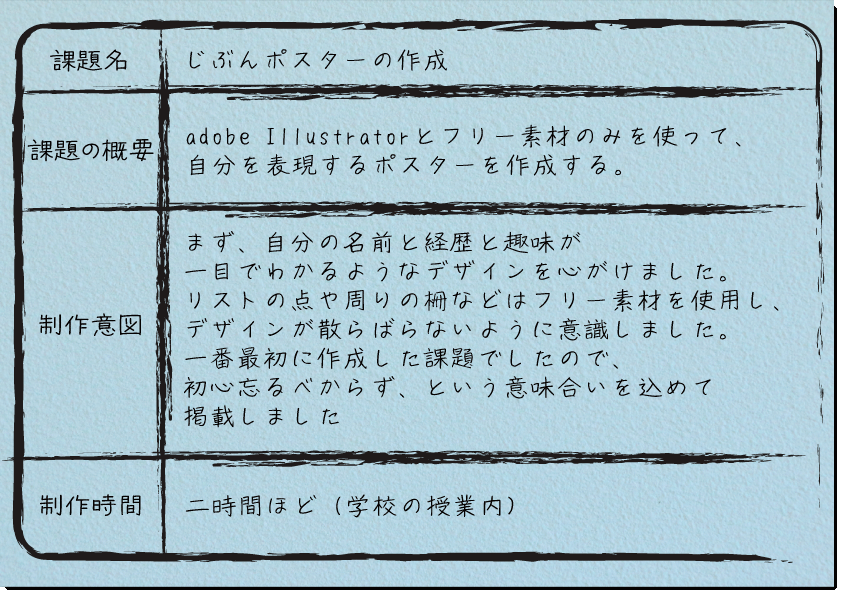 課題名
じぶんポスターの作成
課題の概要
adobe Illustratorとフリー素材のみを使って、
自分を表現するポスターを作成する。
制作意図
まず、自分の名前と経歴と趣味が
一目でわかるようなデザインを心がけました。
リストの点や周りの柵などはフリー素材を使用し、
デザインが散らばらないように意識しました。
一番最初に作成した課題でしたので、
初心忘るべからず、という意味合いを込めて
掲載しました
制作時間
二時間ほど（学校の授業内）